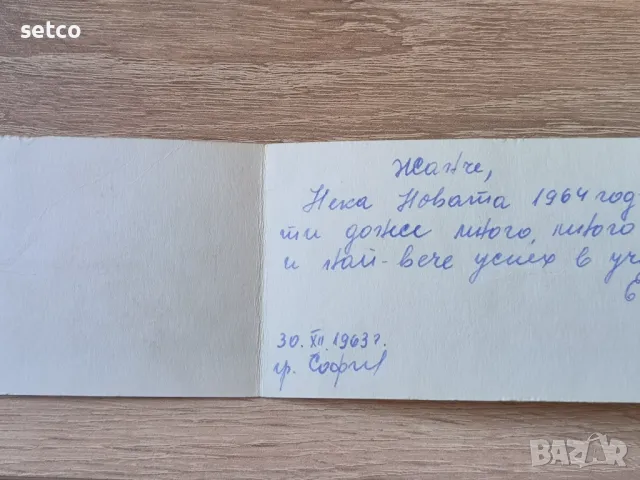 setco
Жанче,
Нека Новата 1964 год
ти донесе много, много
и най-вече успех в уч
30. XII. 1963 г.
гр. София
BAZAR